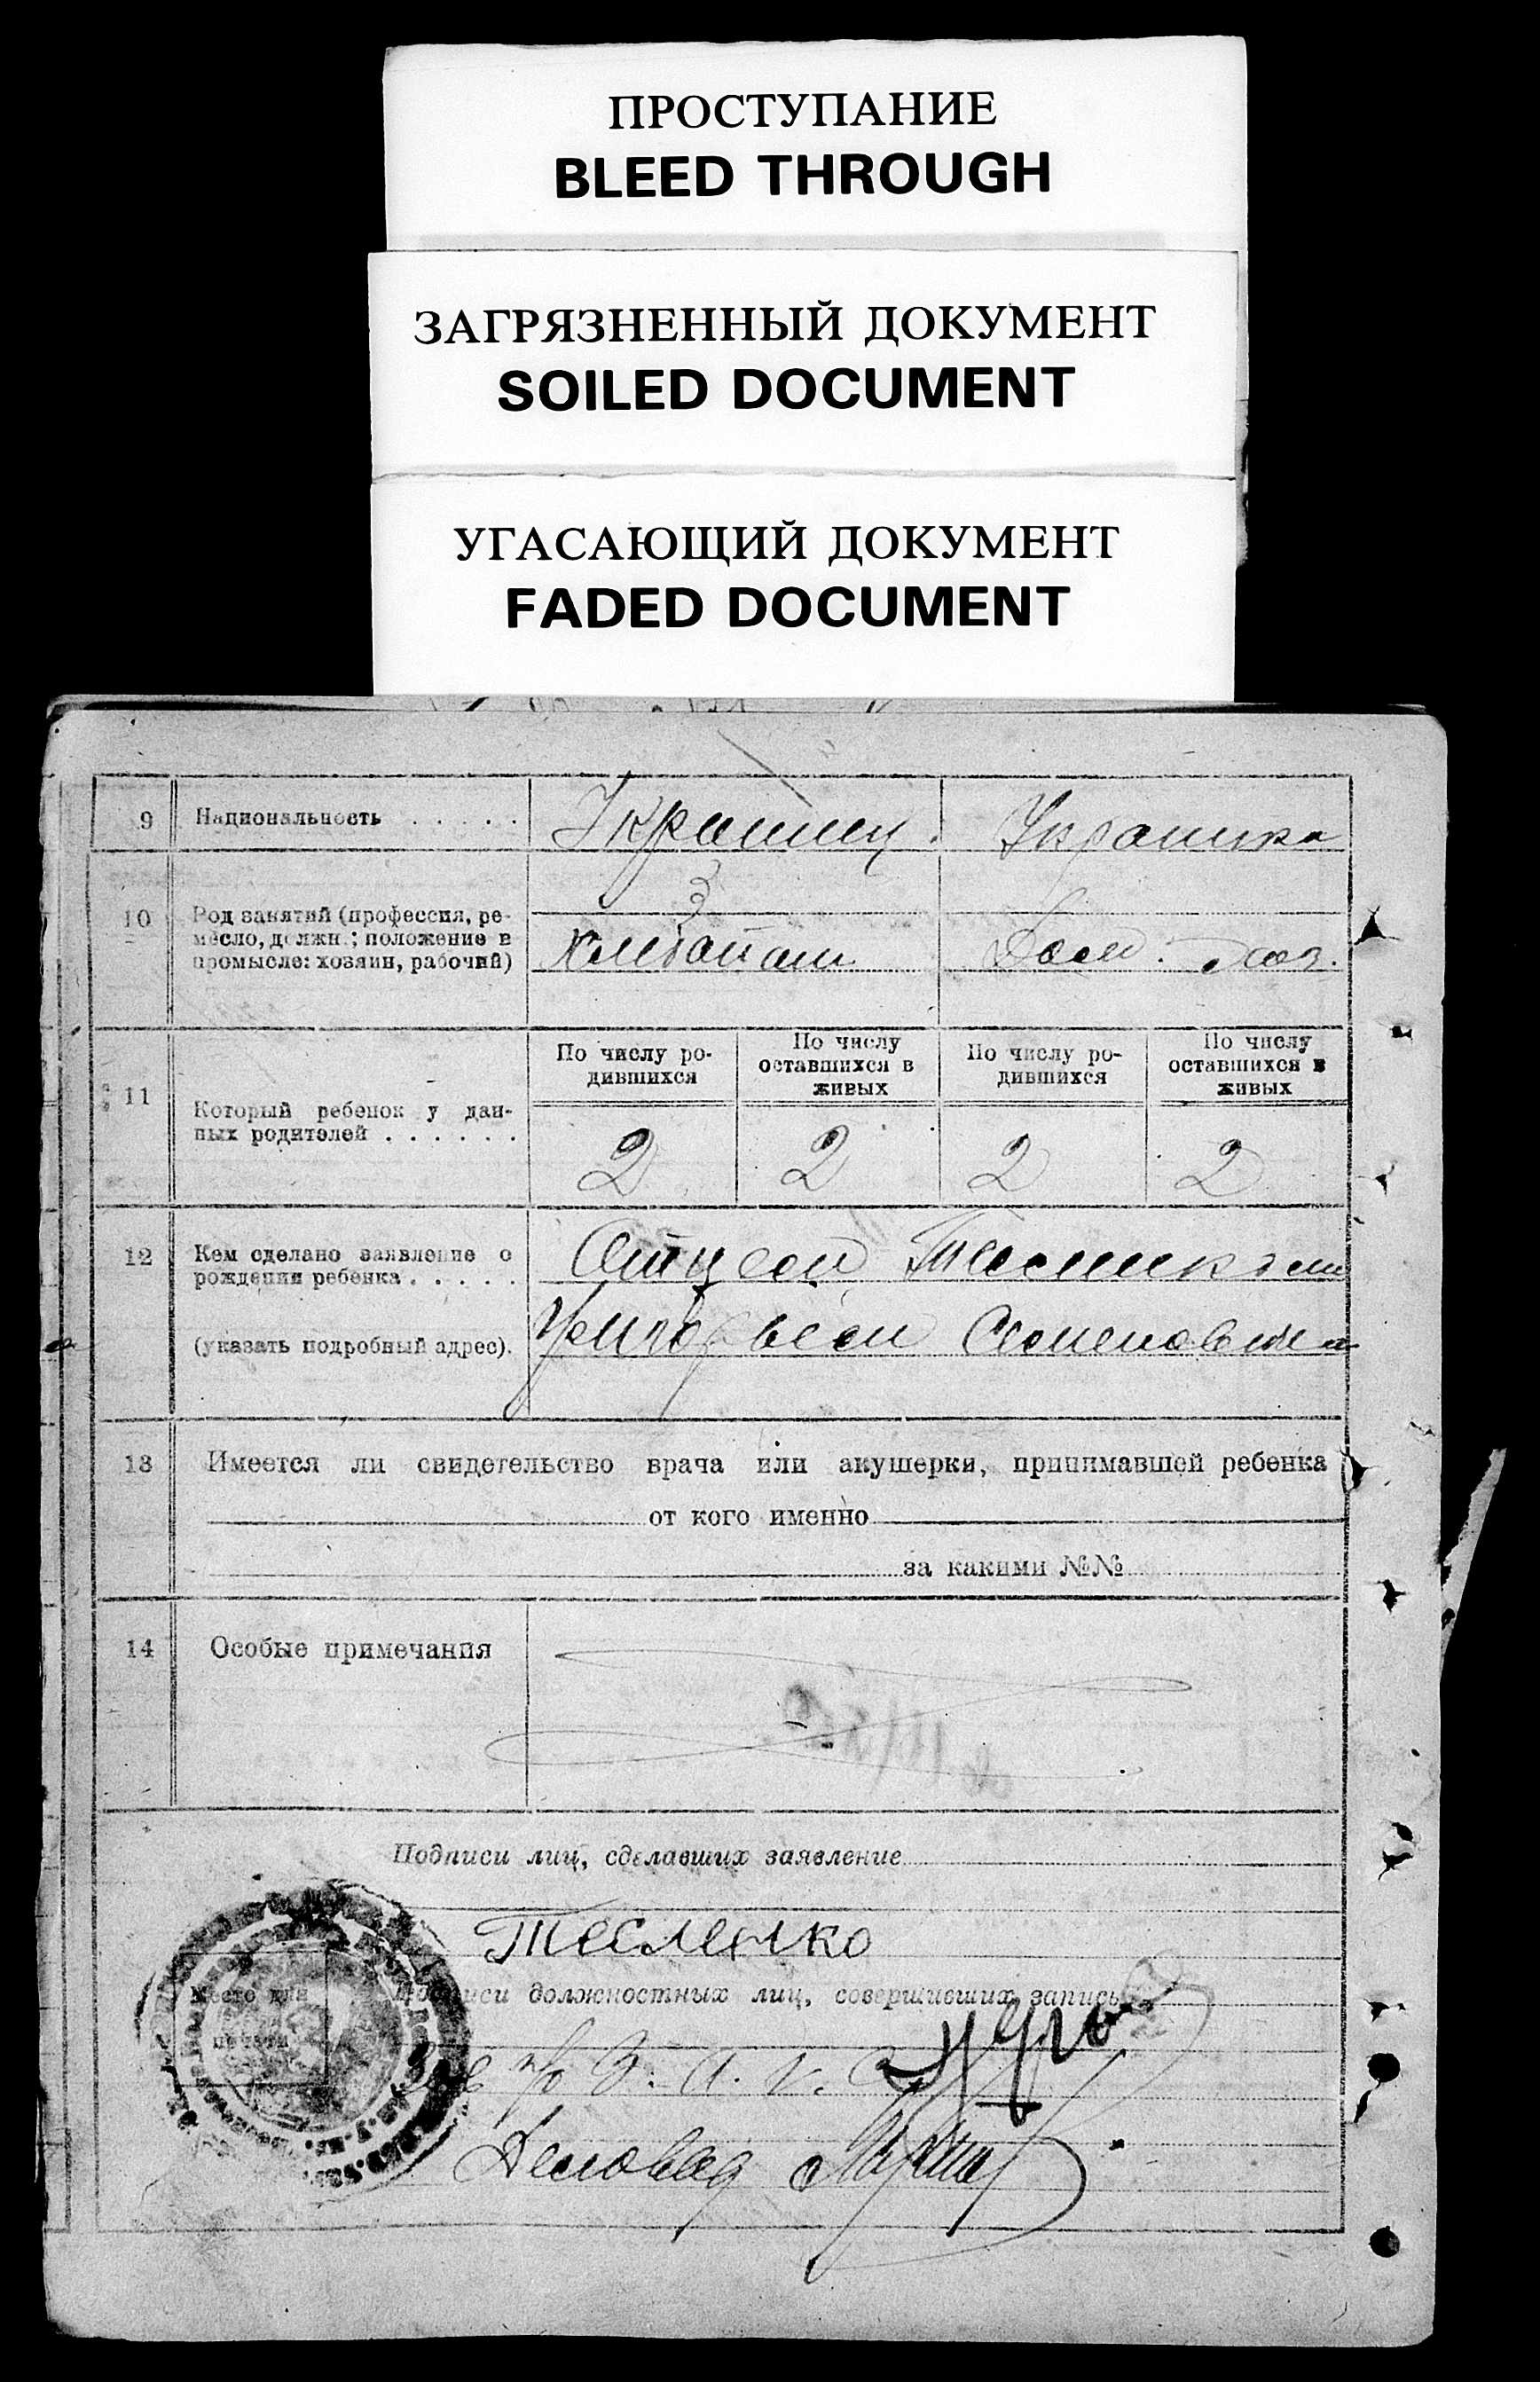 ПРОСТУПАНИЕ
BLEED THROUGH
ЗАГРЯЗНЕННЫЙ ДОКУМЕНТ
SOILED DOCUMENT
УГАСАЮЩИЙ ДОКУМЕНТ
FADED DOCUMENT
9 Национальность . . . . . Украинец. Украинка
10 Род занятий (профессия, ре-
месло, должн.; положение в
промысле: хозяин, рабочий) Хлебопаш Дом. хоз.
3
По числу ро-
дившихся
По числу
оставшихся в
живых
По числу ро-
дившихся
По числу
оставшихся в
живых
11 Который ребенок у дан-
ных родителей . . . . . . 2 2 2 2
12 Кем сделано заявление о
рождении ребенка . . . . . Отцем
(указать подробный адрес). Григорьем Семеновичем
13 Имеется ли свидетельство врача или акушерки, принимавшей ребенка
от кого именно
за какими №№
14 Особые примечания
Подписи лиц, сделавших заявление
Тесленко
Место для
печати
Подписи должностных лиц, совершивших запись
Деловод